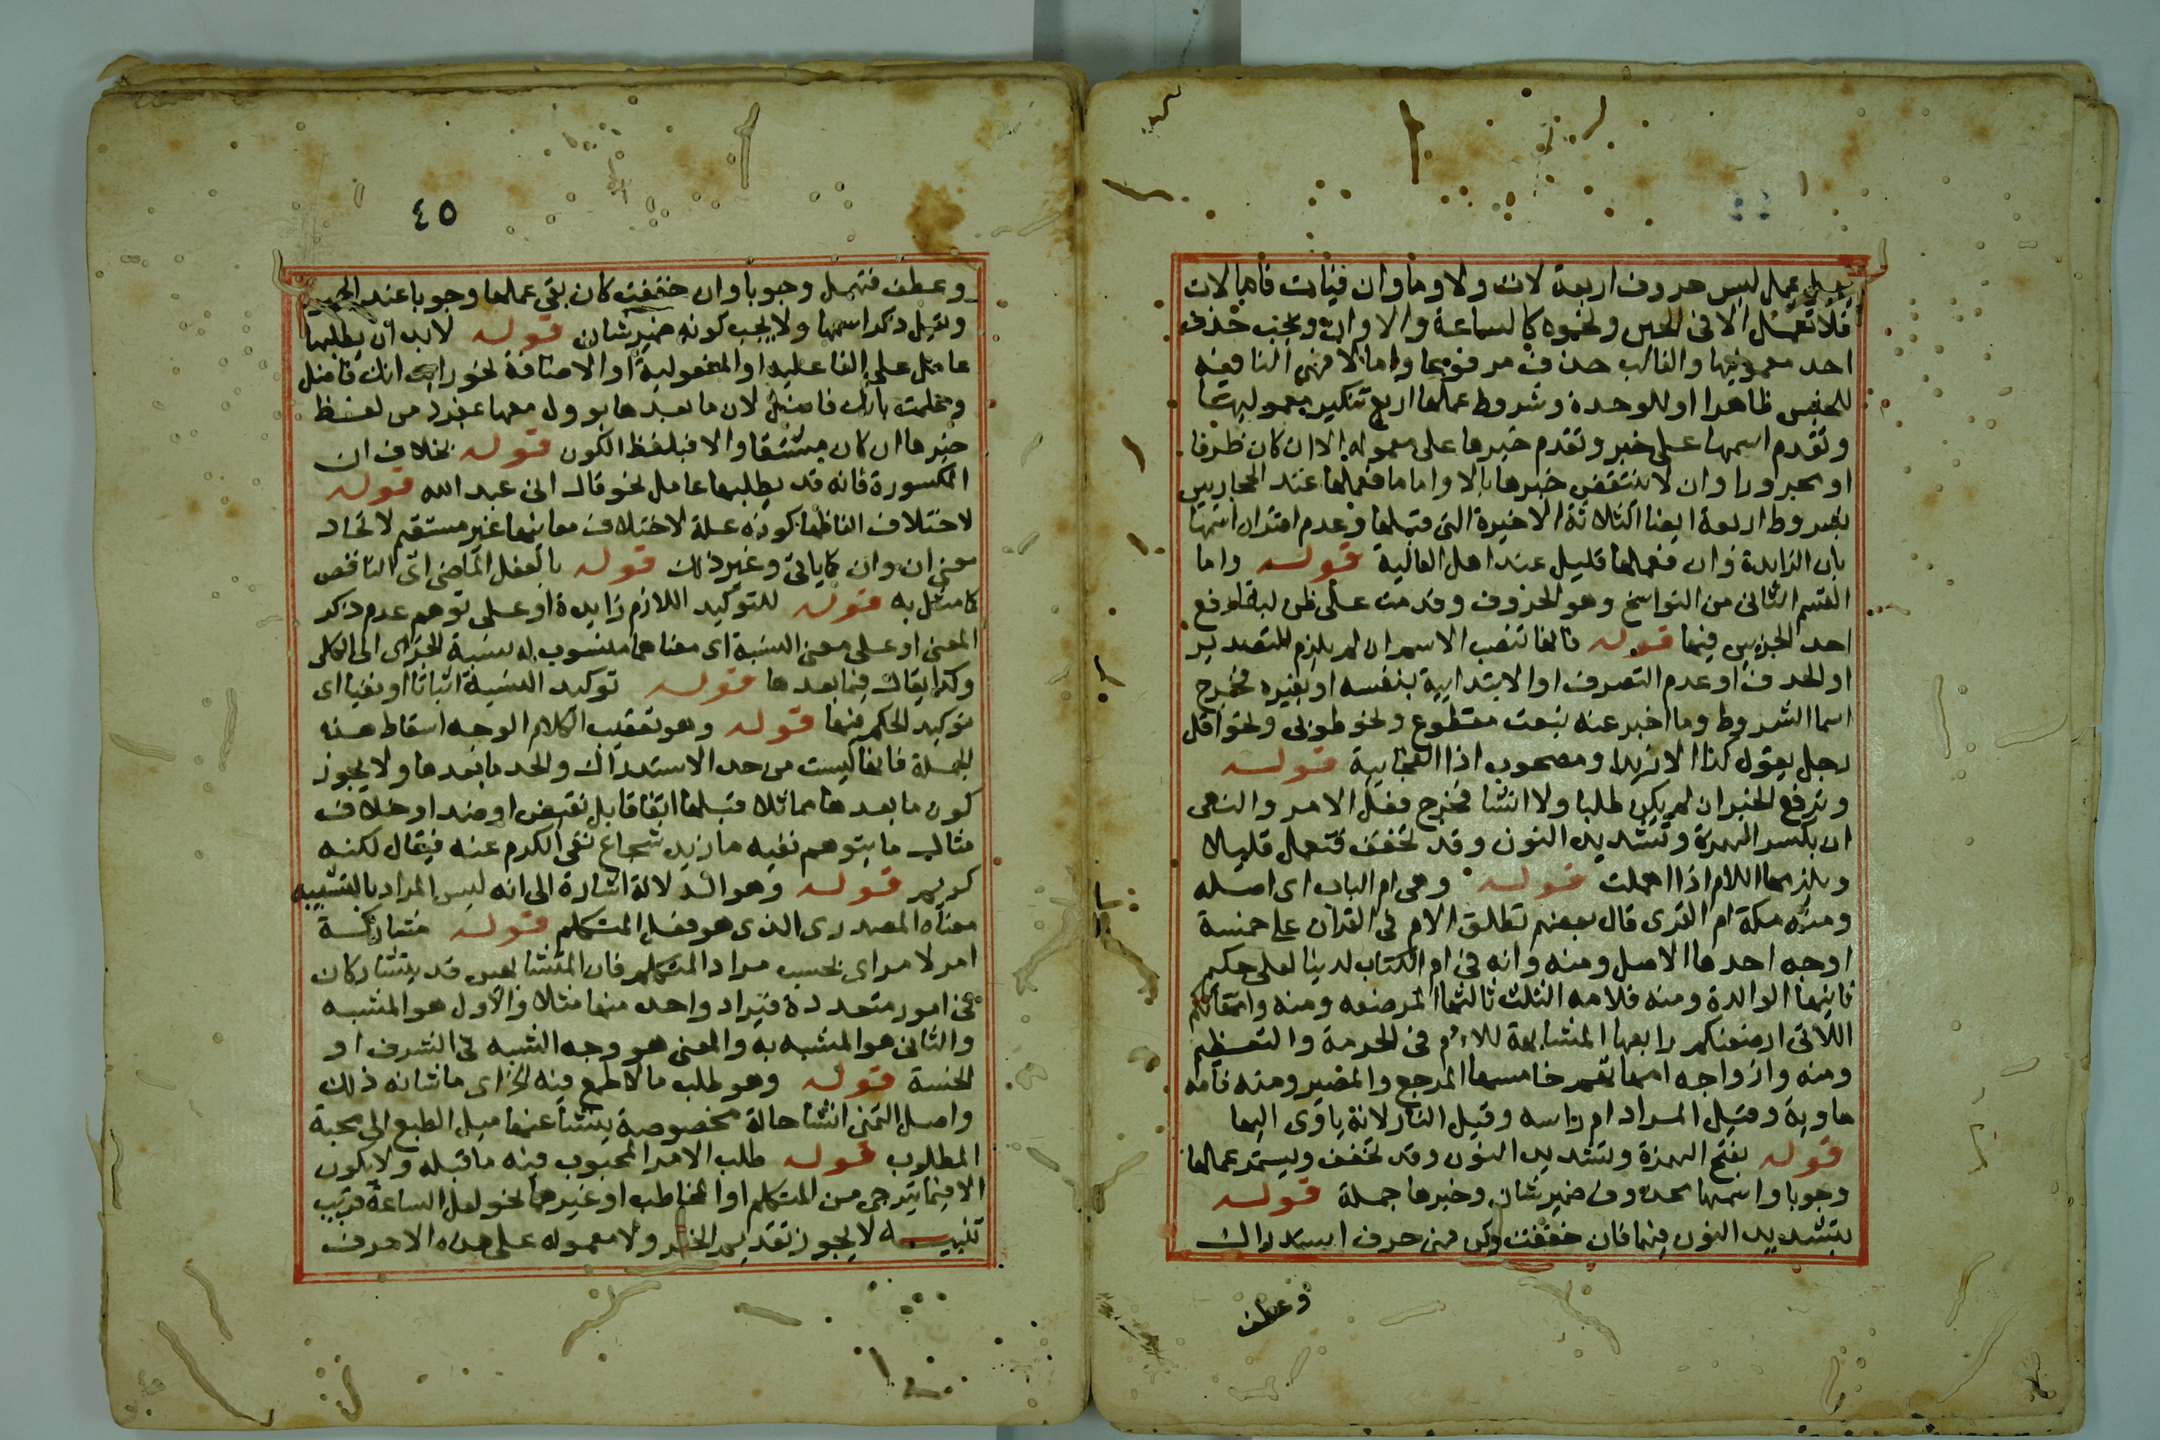 يعمل عمل ليس حروف اربعة لات ولا وما وان فينات فاما لات
فلا تعمل الا فى الحين ونحوه كالساعة والاوان ويجب حذف
احد معموليها والغالب حذف مرفوعها واما لا فهى النافية
للجنس ظاهرا او للوحدة وشروط عملها اربع تنكير معموليها
وتقدم اسمها على خبر وتقدم خبرها على معموله الا ان كان ظرفا
او مجرورا وان لا ينتقض خبرها بالا واما ما فعملها عند الحجازيين
بشروط اربعة ايضا الثلاثة الاخيرة التى قبلها وعدم اقتران اسمها
بان الزايدة وان فعملها قليل عند اهل العالية قوله واما
القسم الثانى من النواسخ وهو الحروف وقدمت على ظن لبقا رفع
احد الجزءين فيها قوله فانها تنصب الاسم ان لم يلزم للتصدير
او الحذف او عدم التصرف او الابتدايية بنفسه او بغيره فخرج
اسما الشروط وما اخبر عنه بنعت مقطوع ونحو طوبى ونحو اقل
رجل يقول كذا الا زيدا ومصحوب اذا الفجايية قوله
وترفع الخبر ان لم يكن طلبا ولا انشا فخرج فعل الامر والنهى
ان بكسر الهمزة وتشديد النون وقد تخفف فتعمل قليلا
ويلزمها اللام اذا اهملت قوله وهى ام الباب اى اصله
ومنه مكة ام القرى قال بعضهم تطلق الام فى القران على خمسة
اوجه احدها الاصل ومنه وانه فى ام الكتاب لدينا لعلى حكيم
ثانيها الوالدة ومنه فلامه الثلث ثالثها المرضعه ومنه وامهاتكم
اللاتى ارضعنكم رابعها المشابهة للام فى الحرمة والتعظيم
ومنه وازواجه امهاتهم خامسها المرجع والمصير ومنه فامه
هاوية وقيل المراد ام راسه وقيل النار لانه ياوى اليها
قوله بفتح الهمزة وتشديد النون وقد تخفف ويستمر عمالها
وجوبا واسمها محذوف ضمير شان وخبرها جملة قوله
بتشديد النون فيها فان خففت لكن فهى حرف استدراك
وعطف
٤٥
وعطف فتهمل وجوبا وان خففت كان بقى عملها وجوبا عند
وقيل ذكر اسمها ولا يجب كونه ضمير شان قوله لابد ان يطلبها
عامل على الفاعليه او المفعولية او الاضافة نحو انك فاضل
وعلمت بانك فاضل لان ما بعدها يوول معها بمفرد من لفظ
خبرها ان كان مشتقا والا فبلفظ الكون قوله بخلاف ان
المكسورة فانه قد يطلبها عامل نحو قال انى عبد الله قوله
لاختلاف الفاظها كونه علة لاختلاف معانيها غير مستقيم لاتحاد
معنى ان وان كما ياتى وغير ذلك قوله بالفعل الماضى اى الناقص
كا مثل به قوله للتوكيد اللازم زايدة او على توهم عدم ذكر
المعنى او على معنى النسبة اى معناهما منسوب له نسبة الجزاى الى الكلى
وكذا يقال فيما بعدها قوله توكيد النسبة اثباتا او نفيا اى
توكيد الحكم فيها قوله وهو تعقيب الكلام الوجه اسقاط هذه
الجملة فانها ليست من حد الاستدراك والحد ما بعدها ولا يجوز
كون ما بعدها مماثلا قبلها اتفاقا بل نقيض او ضد او خلاف
مثال ما يتوهم نفيه ما زيد شجاع نفى الكرم عنه فيقال لكنه
كريم قوله وهو الدلالة اشارة الى انه ليس المراد بالتشبيه
معناه المصدرى الذى هو فعل المتكلم قوله مشاركة
امر لامر اى بحسب مراد المتكلم فان المتشابهين قد يتشاركان
فى امور متعددة فيراد واحد منها مثلا والاول هو المشبه
والثانى هو المشبه به والمعنى هو وجه الشبه فى الشرف او
الخسة قوله وهو طلب ما لا طمع فيه الخ اى ما شانه ذلك
واصل التمنى انشا حالة مخصوصة ينشا عنها ميل الطبع الى محبة
المطلوب قوله طلب الامر المحبوب فيه ما قبله ولا يكون
الا فيما يترجى من المتكلم او المخاطب او غيرهما نحو لعل الساعة قريب
تنبيه لا يجوز تقديم الخبر ولا معموله على هذه الاحرف